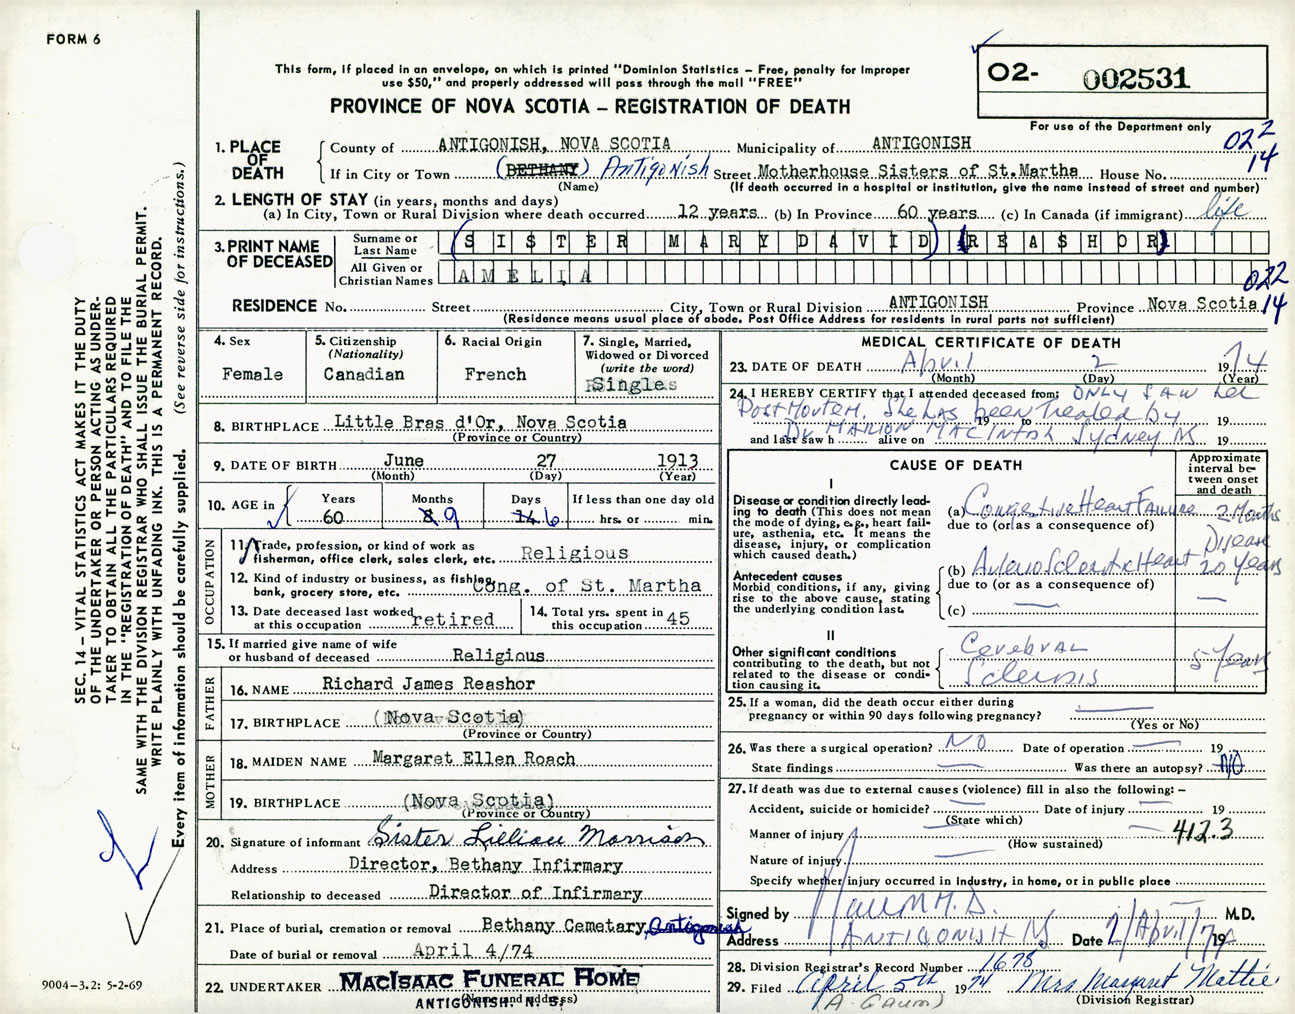 FORM 6
This form, if placed in an envelope, on which is printed "Dominion Statistics – Free, penalty for improper
use $50," and properly addressed will pass through the mail "FREE"
PROVINCE OF NOVA SCOTIA – REGISTRATION OF DEATH
02- 002531
For use of the Department only
022
14
1. PLACE OF DEATH
County of ANTIGONISH, NOVA SCOTIA Municipality of ANTIGONISH
If in City or Town (BETHANY) Antigonish Street Motherhouse Sisters of St.Martha House No.
(Name) (If death occurred in a hospital or institution, give the name instead of street and number)
2. LENGTH OF STAY (in years, months and days)
(a) In City, Town or Rural Division where death occurred 12 years (b) In Province 60 years (c) In Canada (if immigrant) life
3. PRINT NAME OF DECEASED
Surname or Last Name (SISTER MARY DAVID) (REASHOR)
All Given or Christian Names AMELIA
022
14
RESIDENCE No. Street City, Town or Rural Division ANTIGONISH Province Nova Scotia
(Residence means usual place of abode. Post Office Address for residents in rural parts not sufficient)
4. Sex Female
5. Citizenship (Nationality) Canadian
6. Racial Origin French
7. Single, Married, Widowed or Divorced (write the word) Single
8. BIRTHPLACE Little Bras d'Or, Nova Scotia
(Province or Country)
9. DATE OF BIRTH June 27 1913
(Month) (Day) (Year)
10. AGE in Years 60 Months 8 9 Days 14 6 If less than one day old hrs. or min.
OCCUPATION
11. Trade, profession, or kind of work as
fisherman, office clerk, sales clerk, etc. Religious
12. Kind of industry or business, as fishing,
bank, grocery store, etc. Cong. of St. Martha
13. Date deceased last worked
at this occupation retired
14. Total yrs. spent in
this occupation 45
15. If married give name of wife
or husband of deceased Religious
FATHER
16. NAME Richard James Reashor
17. BIRTHPLACE (Nova Scotia)
(Province or Country)
MOTHER
18. MAIDEN NAME Margaret Ellen Roach
19. BIRTHPLACE (Nova Scotia)
(Province or Country)
20. Signature of informant Sister Lillian Morrison
Address Director, Bethany Infirmary
Relationship to deceased Director of Infirmary
21. Place of burial, cremation or removal Bethany Cemetary, Antigonish
Date of burial or removal April 4/74
22. UNDERTAKER MACISAAC FUNERAL HOME
(Name and address)
ANTIGONISH. N. S.
MEDICAL CERTIFICATE OF DEATH
23. DATE OF DEATH April 2 1974
(Month) (Day) (Year)
24. I HEREBY CERTIFY that I attended deceased from: ONLY SAW her
Post Mortem. She has been treated by 19 to 19
and last saw h alive on Dr MARION MACINTOSH Sydney NS 19
CAUSE OF DEATH
Approximate
interval be-
tween onset
and death
I
Disease or condition directly lead-
ing to death (This does not mean
the mode of dying, e.g., heart fail-
ure, asthenia, etc. It means the
disease, injury, or complication
which caused death.)
(a) Congestive Heart Failure 2 Months
due to (or as a consequence of)
Disease
(b) Arteriosclerotic Heart 20 years
due to (or as a consequence of)
(c) — —
Antecedent causes
Morbid conditions, if any, giving
rise to the above cause, stating
the underlying condition last.
II
Other significant conditions
contributing to the death, but not
related to the disease or condi-
tion causing it.
Cerebral
Sclerosis 5 Years
25. If a woman, did the death occur either during
pregnancy or within 90 days following pregnancy? —
(Yes or No)
26. Was there a surgical operation? NO Date of operation — 19
State findings — Was there an autopsy? NO
27. If death was due to external causes (violence) fill in also the following: –
Accident, suicide or homicide? — Date of injury — 19
(State which)
Manner of injury — — 412.3
(How sustained)
Nature of injury —
Specify whether injury occurred in industry, in home, or in public place
Signed by M.D. M.D.
Address ANTIGONISH NS Date 2/April/74 19
28. Division Registrar's Record Number 1678
29. Filed April 5th 1974 Mrs Margaret Mattie
(A. Gaum) (Division Registrar)
SEC. 14 – VITAL STATISTICS ACT MAKES IT THE DUTY
OF THE UNDERTAKER OR PERSON ACTING AS UNDER-
TAKER TO OBTAIN ALL THE PARTICULARS REQUIRED
IN THE "REGISTRATION OF DEATH" AND TO FILE THE
SAME WITH THE DIVISION REGISTRAR WHO SHALL ISSUE THE BURIAL PERMIT.
WRITE PLAINLY WITH UNFADING INK. THIS IS A PERMANENT RECORD.
Every item of information should be carefully supplied. (See reverse side for instructions.)
9004-3.2: 5-2-69